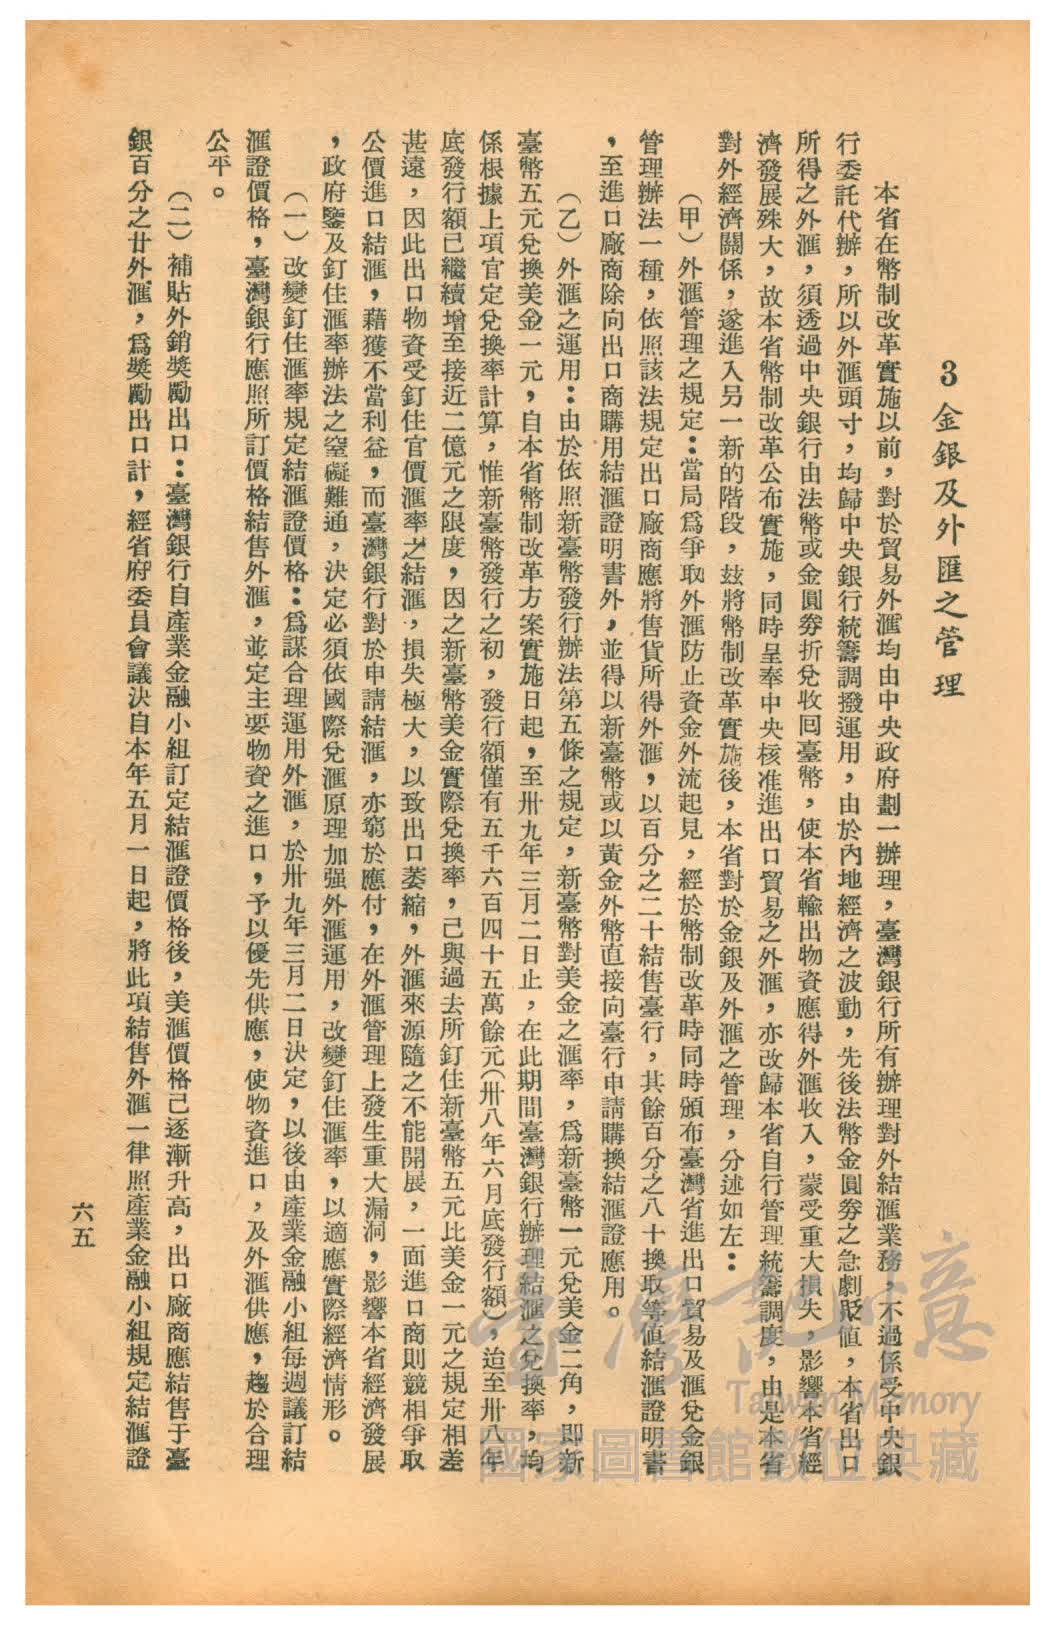 3 金銀及外匯之管理
本省在幣制改革實施以前，對於貿易外滙均由中央政府劃一辦理，臺灣銀行所有辦理對外結滙業務，不過係受中央銀
行委託代辦，所以外滙頭寸，均歸中央銀行統籌調撥運用，由於內地經濟之波動，先後法幣金圓券之急劇貶值，本省出口
所得之外滙，須透過中央銀行由法幣或金圓券折兌收囘臺幣，使本省輸出物資應得外滙收入，蒙受重大損失，影響本省經
濟發展殊大，故本省幣制改革公布實施，同時呈奉中央核准進出口貿易之外滙，亦改歸本省自行管理統籌調度，由是本省
對外經濟關係，遂進入另一新的階段，玆將幣制改革實施後，本省對於金銀及外滙之管理，分述如左：
（甲）外滙管理之規定：當局爲爭取外滙防止資金外流起見，經於幣制改革時同時頒布臺灣省進出口貿易及滙兌金銀
管理辦法一種，依照該法規定出口廠商應將售貨所得外滙，以百分之二十結售臺行，其餘百分之八十換取等値結滙證明書
，至進口廠商除向出口商購用結滙證明書外，並得以新臺幣或以黃金外幣直接向臺行申請購換結滙證應用。
（乙）外滙之運用：由於依照新臺幣發行辦法第五條之規定，新臺幣對美金之滙率，爲新臺幣一元兌美金二角，卽新
臺幣五元兌換美金一元，自本省幣制改革方案實施日起，至卅九年三月二日止，在此期間臺灣銀行辦理結滙之兌換率，均
係根據上項官定兌換率計算，惟新臺幣發行之初，發行額僅有五千六百四十五萬餘元（卅八年六月底發行額），迨至卅八年
底發行額已繼續增至接近二億元之限度，因之新臺幣美金實際兌換率，己與過去所釘住新臺幣五元比美金一元之規定相差
甚遠，因此出口物資受釘住官價滙率之結滙，損失極大，以致出口萎縮，外滙來源隨之不能開展，一面進口商則競相爭取
公價進口結滙，藉獲不當利益，而臺灣銀行對於申請結滙，亦窮於應付，在外滙管理上發生重大漏洞，影響本省經濟發展
，政府鑒及釘住滙率辦法之窒礙難通，決定必須依國際兌滙原理加强外滙運用，改變釘住滙率，以適應實際經濟情形。
（一）改變釘住滙率規定結滙證價格：爲謀合理運用外滙，於卅九年三月二日決定，以後由產業金融小組每週議訂結
滙證價格，臺灣銀行應照所訂價格結售外滙，並定主要物資之進口，予以優先供應，使物資進口，及外滙供應，趨於合理
公平。
（二）補貼外銷獎勵出口：臺灣銀行自產業金融小組訂定結滙證價格後，美滙價格己逐漸升高，出口廠商應結售于臺
銀百分之廿外滙，爲獎勵出口計，經省府委員會議決自本年五月一日起，將此項結售外滙一律照產業金融小組規定結滙證
六五
臺灣記憶
Taiwan Memory
國家圖書館數位典藏